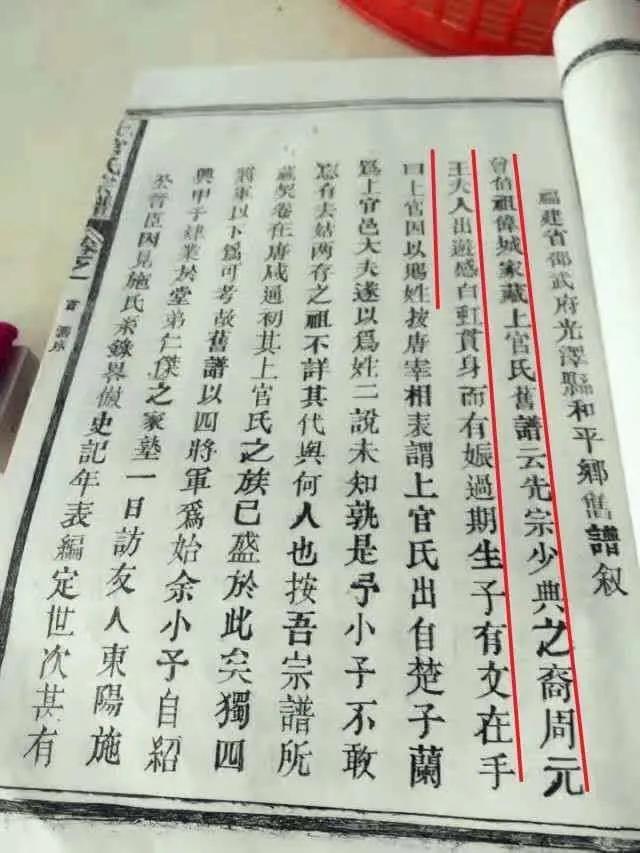 福建省邵武府光澤縣和平鄉舊譜叙
曾伯祖偉城家藏上官氏舊譜云先宗少典之裔周元
王夫人出遊感白虹貫身而有娠過期生子有文在手
曰上官因以賜姓按唐宰相表謂上官氏出自楚子蘭
爲上官邑大夫遂以爲姓二說未知孰是予小子不敢
忘有去姑两存之祖不詳其代與何人也按吾宗譜所
藏契卷在唐咸通初其上官氏之族已盛於此矣獨四
將軍以下爲可考故舊譜以四將軍爲始余小子自紹
興甲子肄業於堂弟仁傑之家塾一日訪友人東陽施
晉臣因見施氏宗錄畧倣史記年表編定世次甚有
上官氏宗譜
卷之一